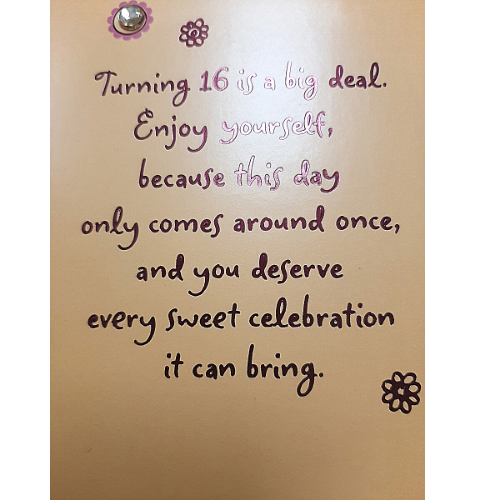 Turning 16 is a big deal.
Enjoy yourself,
because this day
only comes around once,
and you deserve
every sweet celebration
it can bring.